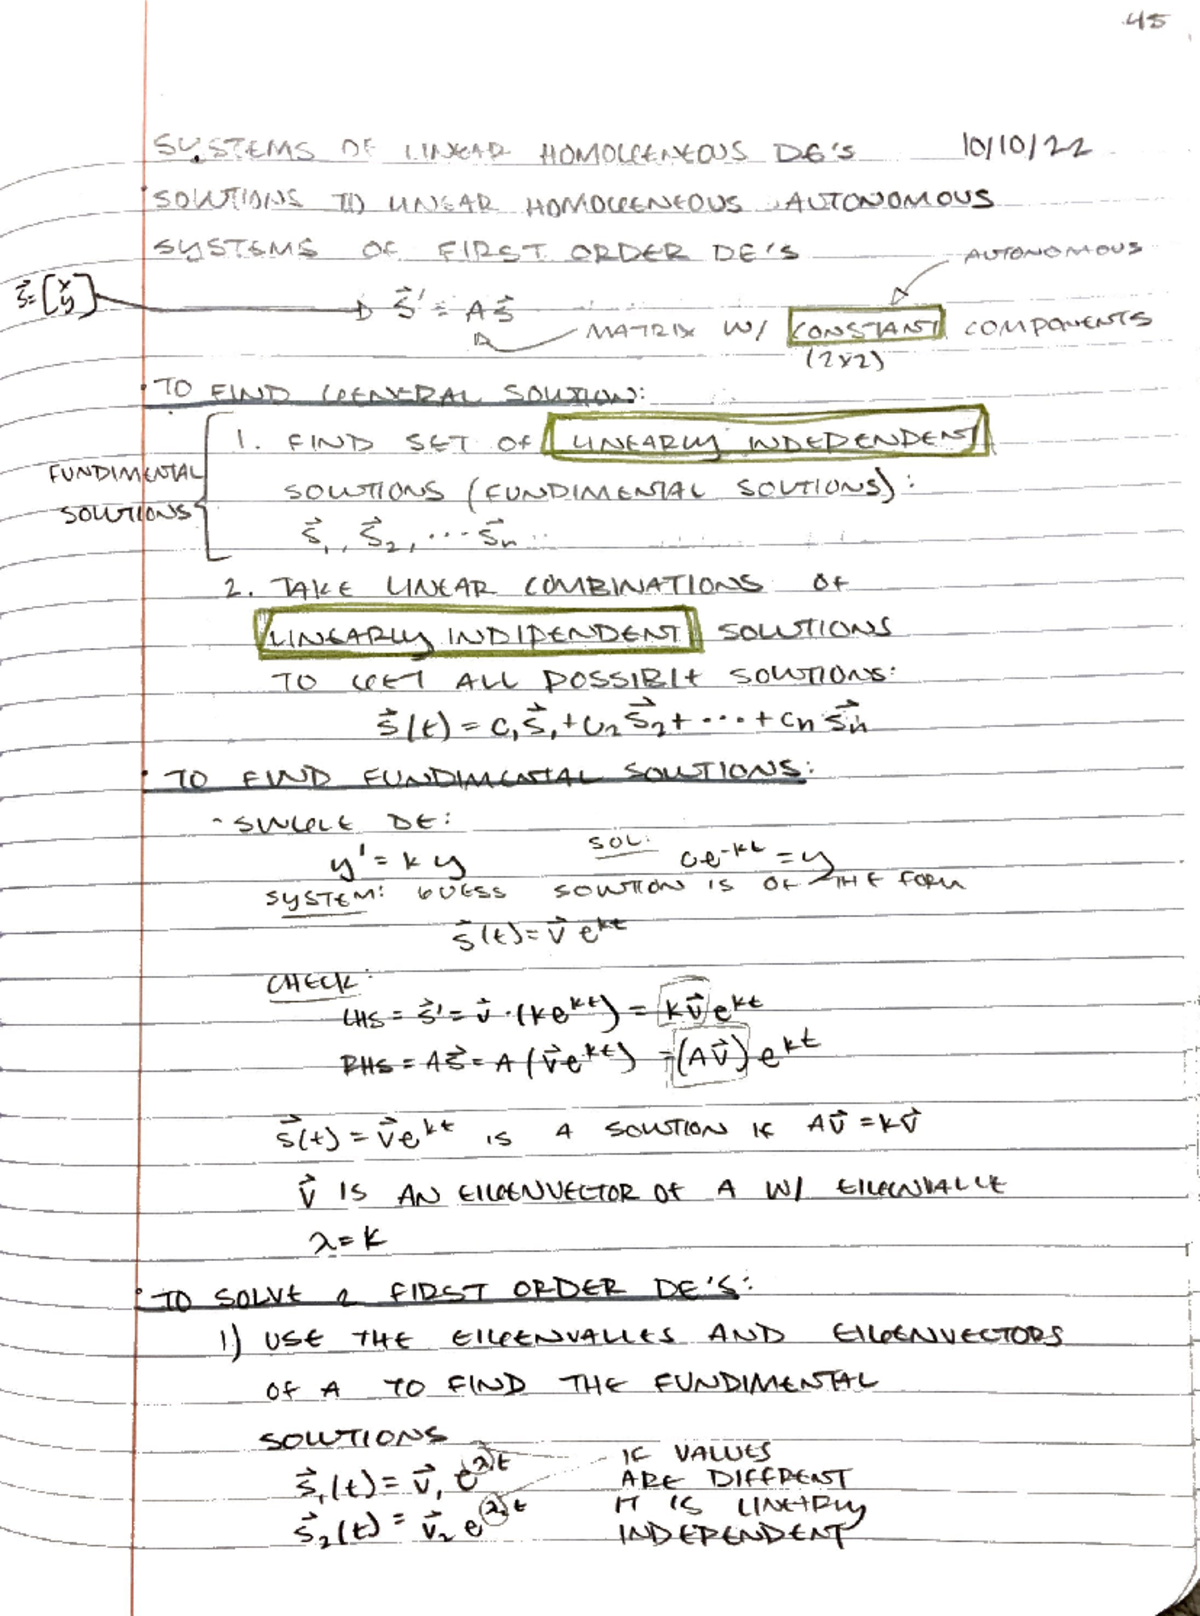 45
SYSTEMS OF LINEAR HOMOGENEOUS DE'S 10/10/22
SOLUTIONS TO LINEAR HOMOGENEOUS AUTONOMOUS
SYSTEMS OF FIRST ORDER DE'S
AUTONOMOUS
s⃗=[x y] → s⃗' = As⃗
MATRIX W/ CONSTANT COMPONENTS
(2x2)
• TO FIND GENERAL SOLUTION:
1. FIND SET OF LINEARLY INDEPENDENT
FUNDIMENTAL SOLUTIONS
SOLUTIONS (FUNDIMENTAL SOLUTIONS):
s⃗₁, s⃗₂, ... s⃗n
2. TAKE LINEAR COMBINATIONS OF
LINEARLY INDIPENDENT SOLUTIONS
TO GET ALL POSSIBLE SOLUTIONS:
s⃗(t) = c₁s⃗₁ + c₂s⃗₂ + ... + cn s⃗n
• TO FIND FUNDIMENTAL SOLUTIONS:
- SINGLE DE:
y' = ky SOL: ce^-kt = y
SYSTEM: GUESS SOLUTION IS OF THE FORM
s⃗(t) = v⃗ e^kt
CHECK:
LHS = s⃗' = v⃗ · (ke^kt) = kv⃗ e^kt
RHS = As⃗ = A(v⃗e^kt) = (Av⃗) e^kt
s⃗(t) = v⃗e^kt IS A SOLUTION IF Av⃗ = kv⃗
v⃗ IS AN EIGENVECTOR OF A W/ EIGENVALUE
λ = k
• TO SOLVE 2 FIRST ORDER DE'S:
1) USE THE EIGENVALUES AND EIGENVECTORS
OF A TO FIND THE FUNDIMENTAL
SOLUTIONS
s⃗₁(t) = v⃗₁ e^λ₁t
s⃗₂(t) = v⃗₂ e^λ₂t
IF VALUES
ARE DIFFERENT
IT IS LINEARLY
INDEPENDENT